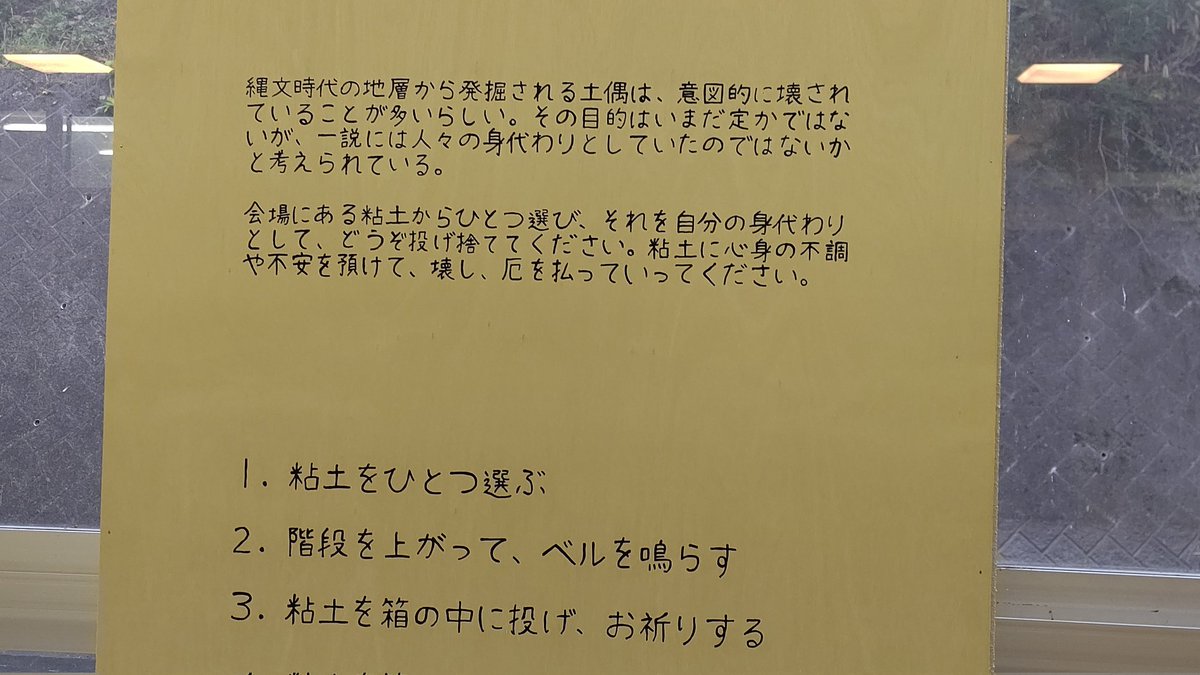 縄文時代の地層から発掘される土偶は、意図的に壊され
ていることが多いらしい。その目的はいまだ定かではな
いが、一説には人々の身代わりとしていたのではないか
と考えられている。
会場にある粘土からひとつ選び、それを自分の身代わり
として、どうぞ投げ捨ててください。粘土に心身の不調
や不安を預けて、壊し、厄を払っていってください。
1. 粘土をひとつ選ぶ
2. 階段を上がって、ベルを鳴らす
3. 粘土を箱の中に投げ、お祈りする